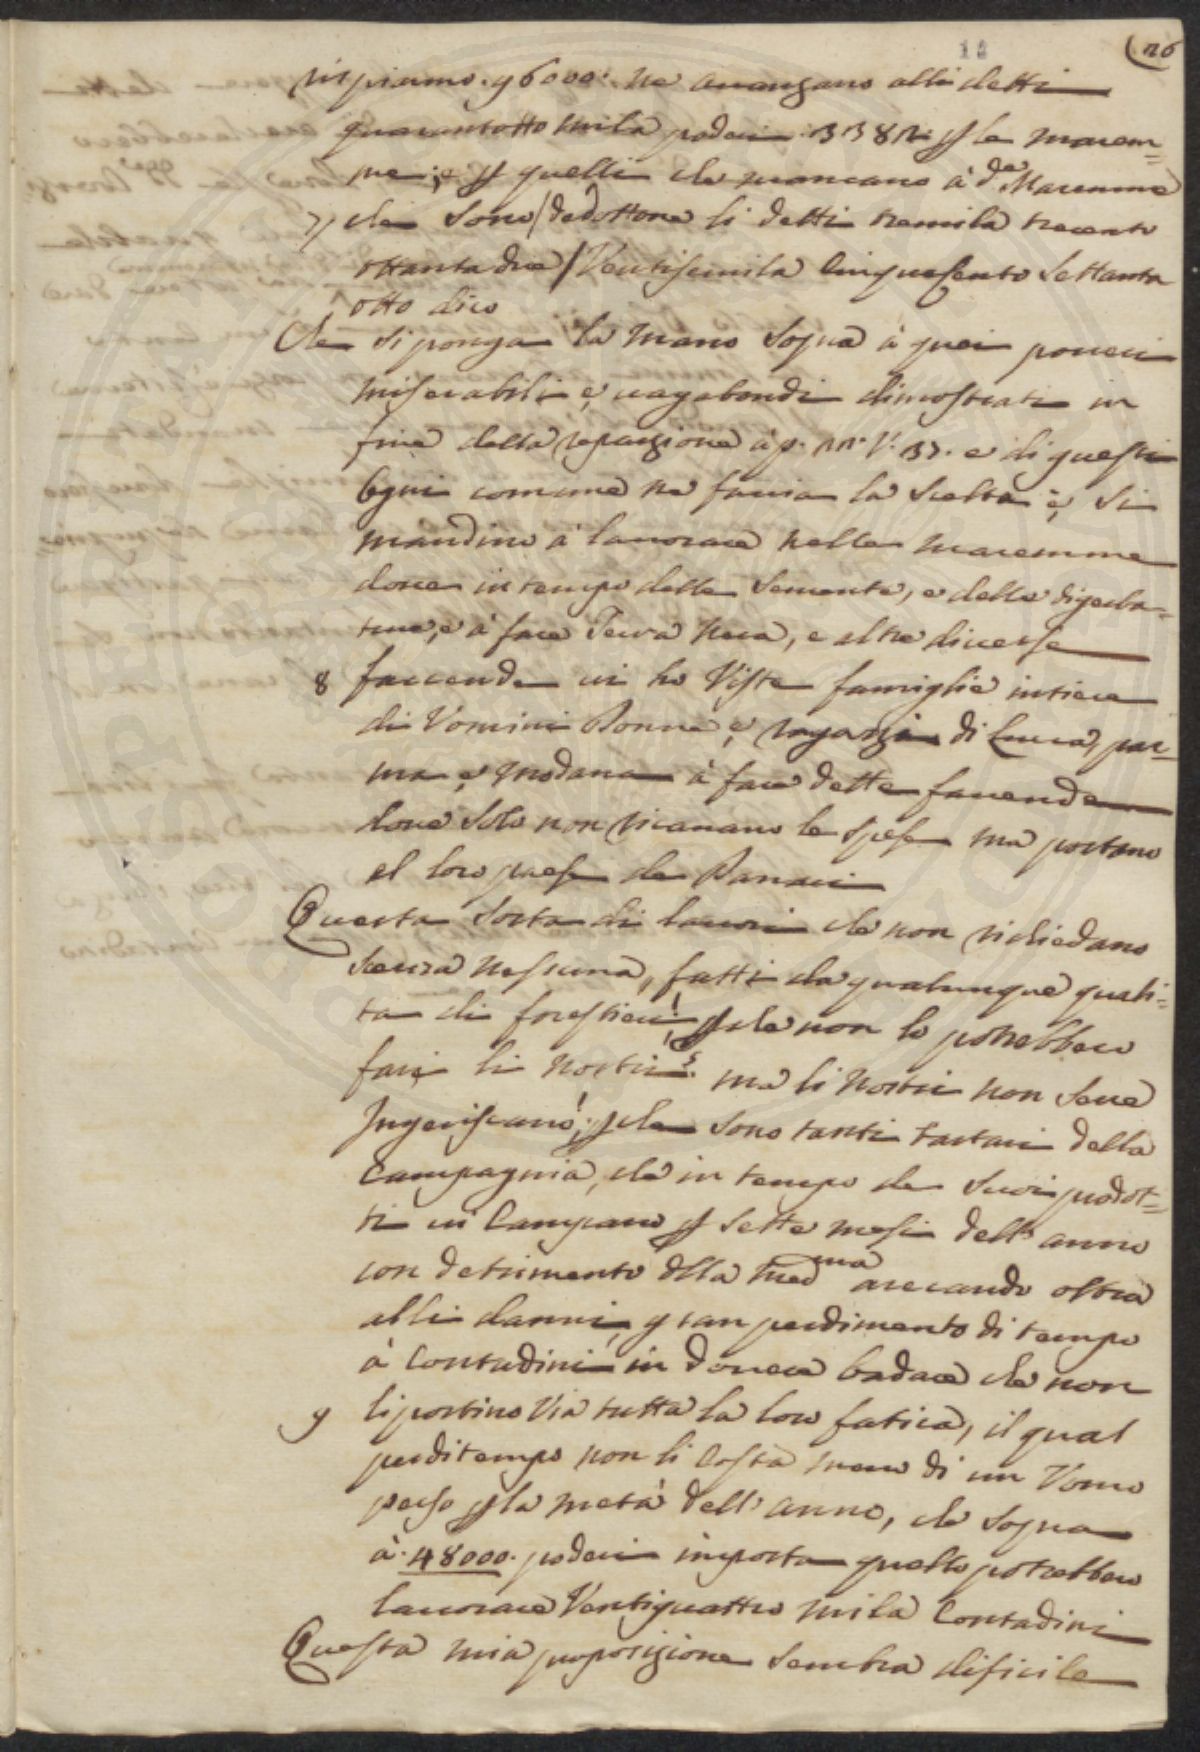 126
rispiarmo. 96000: ne auanzano alli detti
quarantotto mila poderi 3382 p le marem=
me; e p quelli che mancano à d.e Maremme
7/ che sono /dedottone li detti tremila trecento
ottanta due/ Ventiseimila Cinquecento settanta
otto dico
Che si ponga la mano sopra à quei poueri
miserabili e uagabondi dimostrati in
fine della reparzione à p. e di questi
Ogni comune ne faccia la scelta e, si
mandino à lauorare nelle maremme
doue in tempo delle semente, e delle digerba=
ture, e à fare Terra nera, e altre diuerse
8 faccende ui ho Viste famiglie intiere
di Vomini Donne e, ragazzi di Lucca, par=
ma e, Modana à fare dette facende
doue solo non ricauano le spese ma portano
al loro paese de Danari
Questa sorta di lauori che non richiedano
scenza nessuna, fatti da qualunque quali=
ta di forestieri; p che non lo potrebbero
fare li nostri? ma li nostri non sene
Ingeriscano; p che sono tanti tartari della
Campagnia, che in tempo de suoi prodot=
ti ui Campano p sette mesi dell'anno
con detrimento dlla med.ma arecando oltre
alli danni, gran perdimento di tempo
à Contadini in douere badare che non
9 li portino Via tutta la loro fatica, il qual
perditempo non li Costa meno di un Vomo
perso p la metà dell'anno, che sopra
à. 48000. poderi importa quello potrebbero
lauorare Ventiquattro mila Contadini
Questa mia proposizione sembra dificile